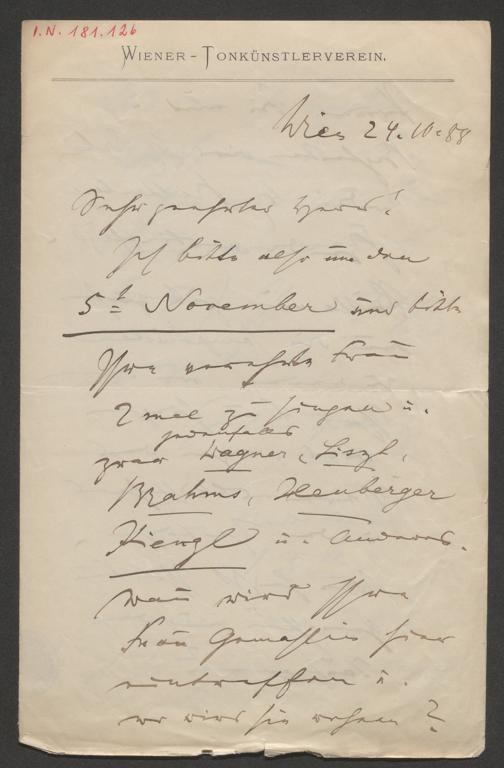 I.N. 181.126
WIENER-TONKÜNSTLERVEREIN.
Wien 24.10.88
Sehr geehrter Herr!
Ich bitte also um den
5t November und bitte
Ihre verehrte Frau
2 mal zu singen u.
jedenfalls
zwar Wagner, Liszt,
Brahms, Heuberger
Kienzl u. Anderes.
Wann wird Ihre
Frau Gemahlin hier
eintreffen u.
wo wird sie wohnen?